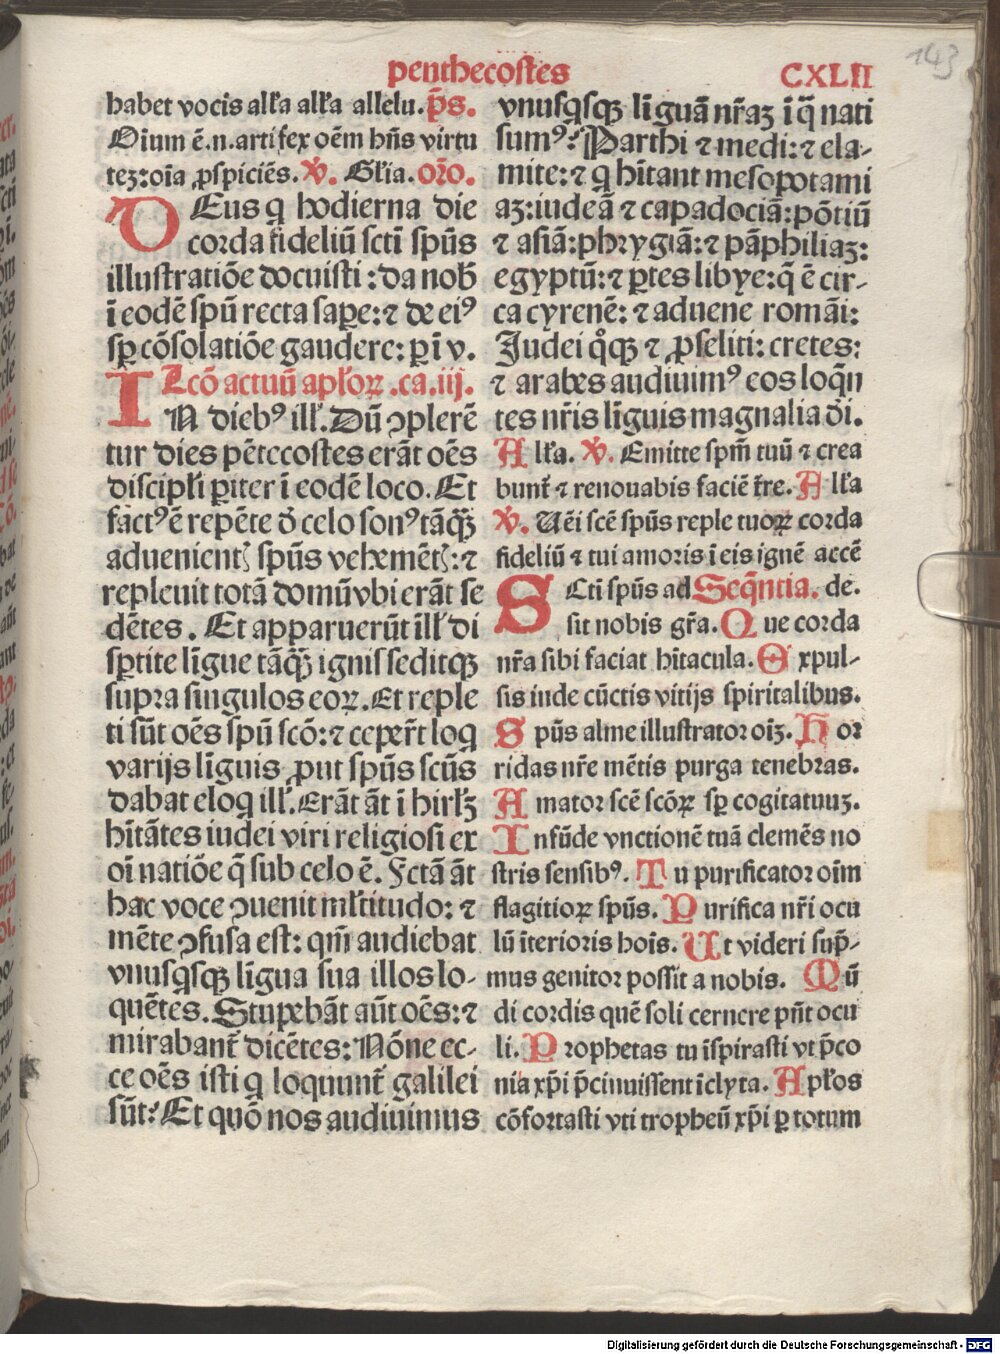 penthecostes
CXLII
143
habet vocis all'a all'a allelu. p̄s.
Oium ē.n.artifex oēm hn̄s virtu
tez:oīa ꝓspiciēs. ꝟ. Gl'ia. or̄o.
DEus q̇ hodierna die
corda fideliū sctī spūs
illustratiōe docuisti : da nob̄
ī eodē spū recta saꝑe: ⁊ de eiꝰ
sꝑ cōsolatiōe gaudere: ꝑ ī v.
Lcō actuū apl'oꝝ .ca.iij.
IN diebꝰ ill'. Dū ꝯplerē
tur dies pētecostes erāt oēs
discipl'i ꝑiter ī eodē loco. Et
factꝰ ē repēte ď celo sonꝰ tāꝙ̄
aduenientꝭ spūs vehemētꝭ: ⁊
repleuit totā domū vbi erāt se
dētes . Et apparuerūt ill' di
sꝑtite līgue tāꝙ̄ ignis seditqꝫ
supra singulos eoꝝ. Et reple
ti sūt oēs spū scō: ⁊ ceper̄t loq
varijs līguis ꝓut spūs scūs
dabat eloq ill'. Erāt āt ī hirl'ꝫ
hītātes iudei viri religiosi ex
oī natiōe q̄ sub celo ē. Fctā āt
hac voce ꝯuenit ml'titudo: ⁊
mēte ꝯfusa est: qm̄ audiebat
vnusqsqꝫ līgua sua illos lo-
quētes. Stupebāt aūt oēs: ⁊
mirabant̄ dicētes: Nōne ec-
ce oēs isti q̇ loquunt̄ galilei
sūt? Et quō nos audiuimus
vnusqsqꝫ līguā nr̄aꝫ ī q̄ nati
sumꝰ? Parthi ⁊ medi: ⁊ ela-
mite: ⁊ q̇ hītant mesopotami
aꝫ: iudeā ⁊ capadociā: pōtiū
⁊ asiā: phrygiā: ⁊ pāphiliaꝫ:
egyptū: ⁊ ꝑtes libye: q̄ ē cir-
ca cyrenē: ⁊ aduene romāi:
Judei q̊qꝫ ⁊ ꝓseliti: cretes:
⁊ arabes audiuimꝰ eos loq̄n
tes nr̄is līguis magnalia ďi.
All'a. ꝟ. Emitte spm̄ tuū ⁊ crea
bunt̄ ⁊ renouabis faciē tr̄e. All'a
ꝟ. Uēi scē spūs reple tuoꝝ corda
fideliū ⁊ tui amoris ī eis ignē accē
SCti spūs ad Seq̄ntia. de.
sit nobis gr̄a. Que corda
nr̄a sibi faciat hītacula. Expul-
sis inde cūctis vitijs spiritalibus.
Spūs alme illustrator oīꝫ. Hor
ridas nr̄e mētis purga tenebras.
Amator scē scōꝝ sꝑ cogitatuuꝫ.
Infūde vnctionē tuā clemēs no
stris sensibꝰ. Tu purificator oīm
flagitioꝝ spūs. Purifica nr̄i ocu
lū īterioris hoīs. Ut videri sup̄-
mus genitor possit a nobis. Mū
di cordis quē soli cernere pn̄t ocu
li. Prophetas tu īspirasti vt p̄co
nia xp̄i p̄cinuissent īclyta. Apl'os
cōfortasti vti tropheū xp̄i ꝑ totum
Digitalisierung gefördert durch die Deutsche Forschungsgemeinschaft - DFG